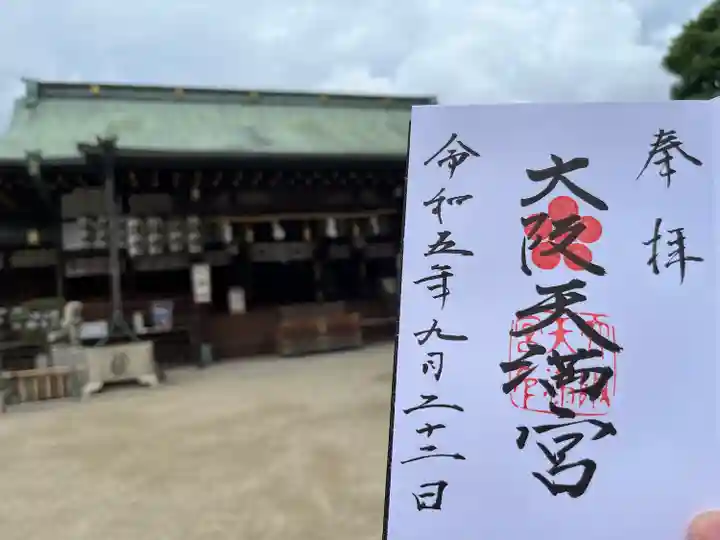 奉拝
大阪天満宮
令和五年九月二十二日